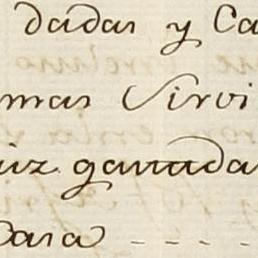 dadas y Ca
mas Sirvi
iz ganada
Casa